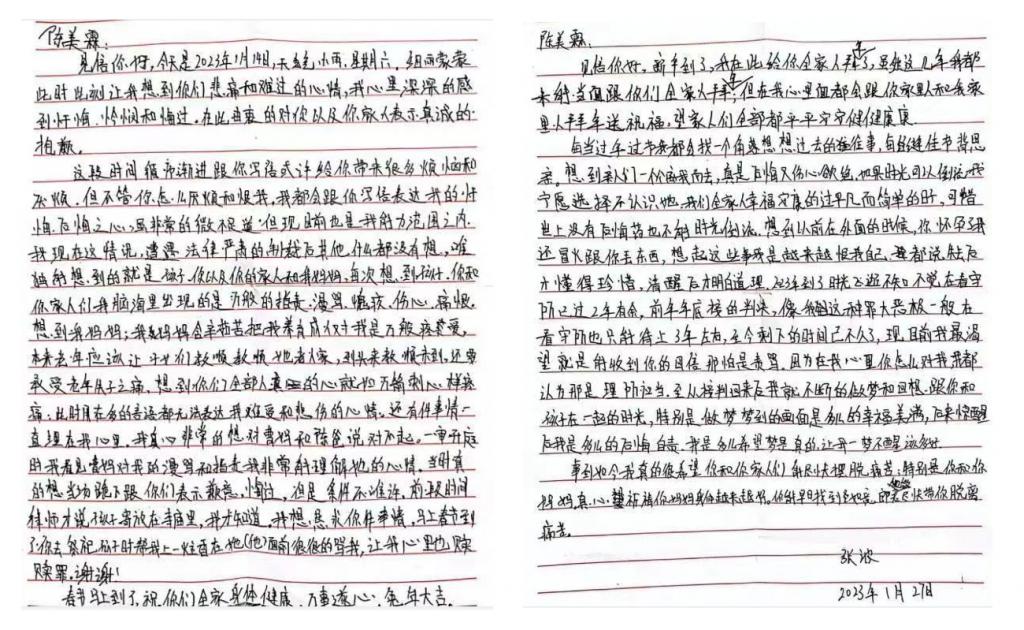 陈美霖:
见信你好,今天是2023年1月14日,天气小雨,星期六,细雨蒙蒙
此时此刻让我想到你们悲痛和难过的心情,我心里深深的感
到忏悔、怜悯和悔过。在此由衷的对你以及你家人表示真诚的
抱歉。
这段时间循序渐进跟你写信或许给你带来很多烦恼和
厌烦,但不管你怎么厌烦和恨我,我都会跟你写信表达我的忏
悔、后悔之心,虽非常的微不足道但现目前也是我能力范围之内。
我现在这情况,遭遇法律严肃的制裁后其他什么都没有想,唯
独能想到的就是孩子、你以及你的家人和我妈妈,每次想到孩子、你和
你家人们我脑海里出现的是万般的指责、漫骂、愧疚、伤心、痛恨。
想到我妈妈;我妈妈含辛茹苦把我养育成人对我是万般疼爱,
本来去年应该让子女们教顺教顺她老人家,到头来教顺未到,还要
承受老年失子之痛,想到你们全部人真的心就如万箭刺心一样疼
痛;此时用在多的言语都无法表达我难受和悲伤的心情。还有件事情一
直埋在我心里,我真心非常的想对曹妈和陈爸说对不起。一审开庭
时我看见曹妈对我的漫骂和指责我非常能理解她的心情,当时真
的想当场跪下跟你们表示歉意、悔过,但是条件不准许,前段时间
律师才说孩子寄放在寺庙里,我才知道,我想恳求你件事情,马上春节到
了你去祭祀孩子时帮我上一炷香在她(他)面前很很的骂我,让我心里也赎
赎罪,谢谢!
春节马上到了,祝你们全家身体健康、万事遂心、兔年大吉。
陈美霖:
见信你好。新年到了,我在此给你全家人拜年了,思绪这几年我都
未能当面跟你们全家人拜年;但在我心里面都会跟你家人和我家
里人拜年送祝福,望家人们全部都平平安安健健康康
每当过年过节我都会找一个角落想想过去的往事,每逢佳节背思
亲。想到亲人们一个个离我而去,真是后悔又伤心欲绝,如果时光可以倒流,我
宁愿选择不认识她,我们全家人幸福安康的过平凡而简单的时,可惜
世上没有后悔药也不能时光倒流。想到以前在外面的时候,你怀孕了我
还冒火跟你丢东西,想起这些事我是越来越恨我自己,要都说失后
才懂得珍惜,清醒后才明白道理,2023年到了时光飞逝不知不觉在看守
所已过2年有余,前年年底接的判决,像我这种罪大恶极一般在
看守所也只能待上3年左右,至今剩下的时间已不久了,现目前我最渴
望就是能收到你的回信那怕是责骂。因为在我心里你怎么对我我都
认为那是理所应当。至从接判回来后我就不断的做梦和回想跟你和
孩子在一起的时光,特别是做梦梦到的画面是多么的幸福美满,后来惊醒
后我是多么的后悔自责。我是多么希望梦是真的,让我一梦不醒该多好
事到如今我真的很希望你和你家人们能尽快摆脱痛苦;特别是你和你
妈妈,真心祝福你妈妈身体越来越好,你能早日找到多她意,能尽快带你脱离
痛苦。
张波
2023年1月27日